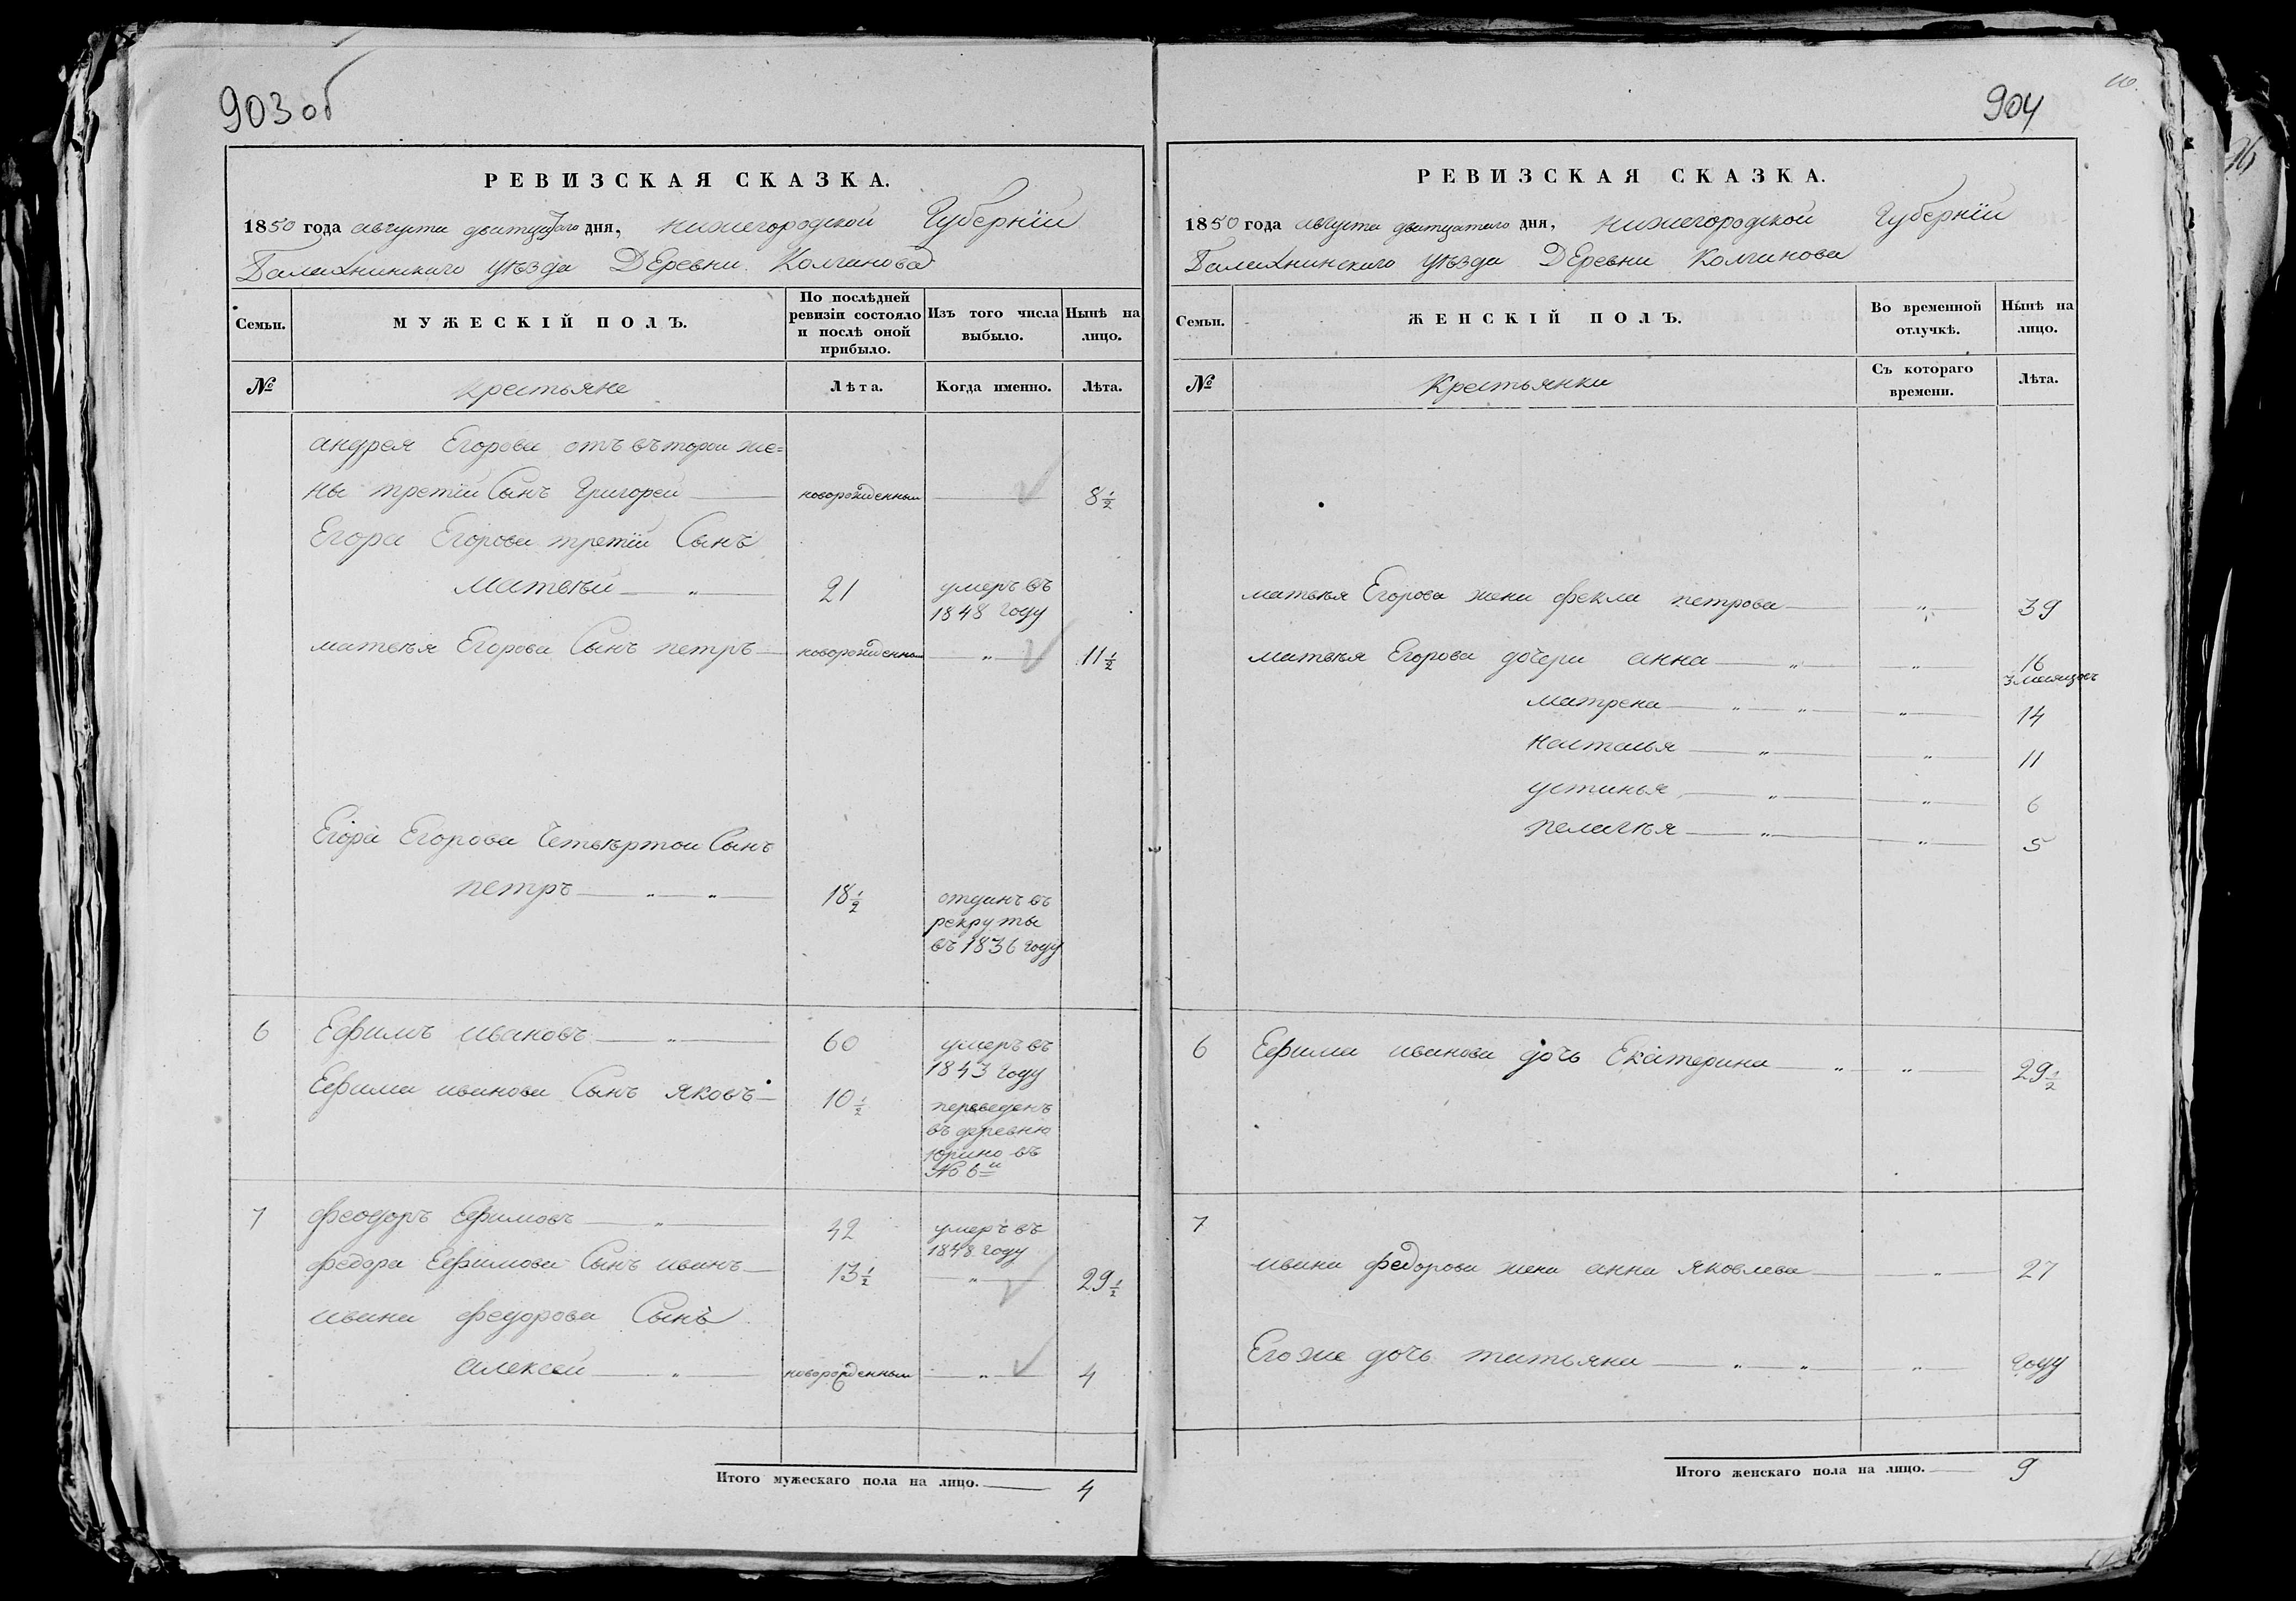 903 об
РЕВИЗСКАЯ СКАЗКА.
1850 года августа дватцатаго дня, нижегородской Губернiи
Балахнинскаго уѣзда ДЕревни Колчанова
Семьи.
МУЖЕСКІЙ ПОЛЪ.
По послѣдней ревизіи состояло и послѣ оной прибыло.
Изъ того числа выбыло.
Нынѣ на лицо.
№
крестьяне
Лѣта.
Когда именно.
Лѣта.
андрея Егорова отъ въторои же=
ны третiи Сынъ Григореи — новорожденныи — 8 1/2
Егора Егорова третiи Сынъ
матвѣи — " — 21 умеръ въ
1848 году
матвѣя Егорова Сынъ петръ — новорожденны — " — 11 1/2
Егора Егорова Четвѣртои Сынъ
петръ — " — " — 18 1/2 отданъ въ
рекруты
въ 1836 году
6 Ефимъ ивановъ — " — 60 умеръ въ
1843 году
Ефима иванова Сынъ яковъ — 10 1/2 переведенъ
въ деревню
юрино въ
№ 6и
7 феодоръ Ефимовъ — " — 42 умеръ въ
1848 году
федора Ефимова Сынъ иванъ — 13 1/2 — " — 29 1/2
ивана федорова Сынъ
алексеи — " — новорожденныи — " — 4
Итого мужескаго пола на лицо. — 4
904
РЕВИЗСКАЯ СКАЗКА.
1850 года августа дватцатаго дня, нижегородской Губернiи
Балахнинскаго уѣзда ДЕревни Колчанова
Семьи.
ЖЕНСКІЙ ПОЛЪ.
Во временной отлучкѣ.
Нынѣ на лицо.
№
Крестьянки
Съ котораго времени.
Лѣта.
матвѣя Егорова жена фекла петрова — " — 39
матвѣя Егорова дочери анна — " — " — 16
3 месяцовъ
матрена — " — " — " — 14
наталья — " — " — 11
устинья — " — " — 6
пелагѣя — " — " — 5
6 Ефима иванова дочь Екатерина — " — " — 29 1/2
7
ивана федорова жена анна яковлева — " — 27
Его же дочь татьяна — " — " — " — году
Итого женскаго пола на лицо. — 9